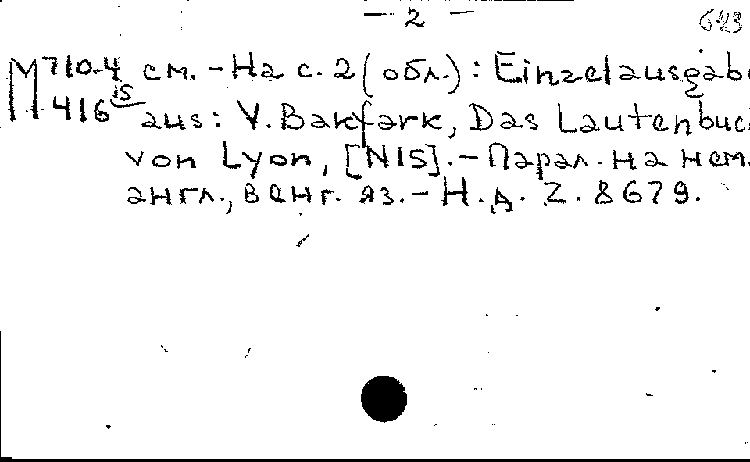 — 2 —
M 710-4 см. - На с. 2 (обл.): Einzelausgabe
416 15 aus: V. Bakfark, Das Lautenbuc
von Lyon, [N15]. - Парал. на нем.
англ., венг. яз. - Н. д. Z. 8679.